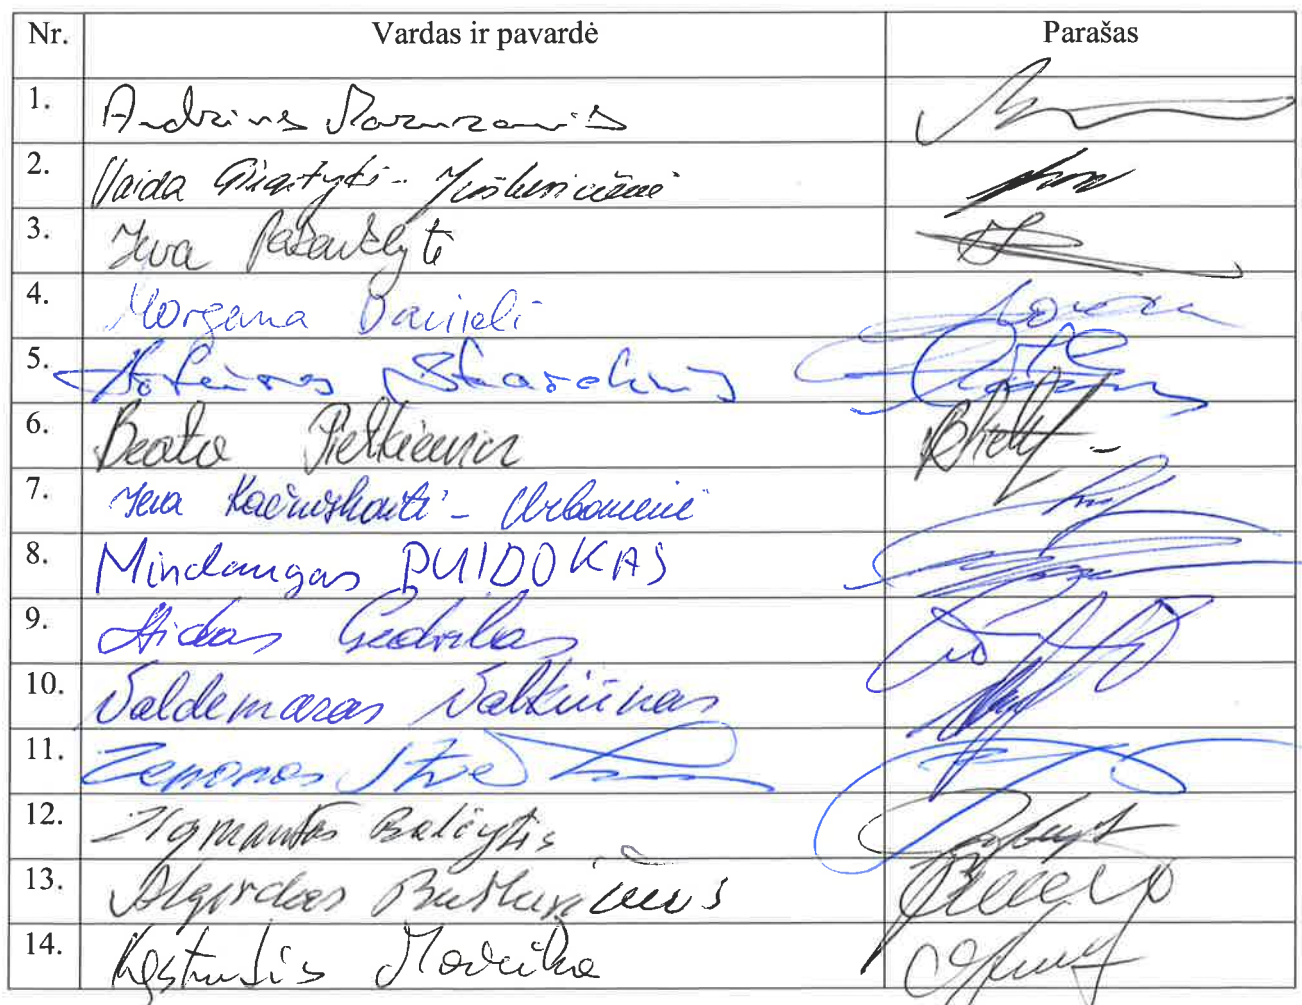 Nr. Vardas ir pavardė Parašas
1. Andrius Mazuronis
2. Vaida Giraitytė-Juškevičienė
3. Ieva Pakarklytė
4. Morgana Danielė
5. Artūras Skardžius
6. Beata Pietkiewicz
7. Ieva Kačinskaitė-Urbonienė
8. Mindaugas PUIDOKAS
9. Aidas Gedvilas
10. Valdemaras Valkiūnas
11. Zenonas
12. Zigmantas Balčytis
13. Algirdas Butkevičius
14. Kęstutis Mažeika